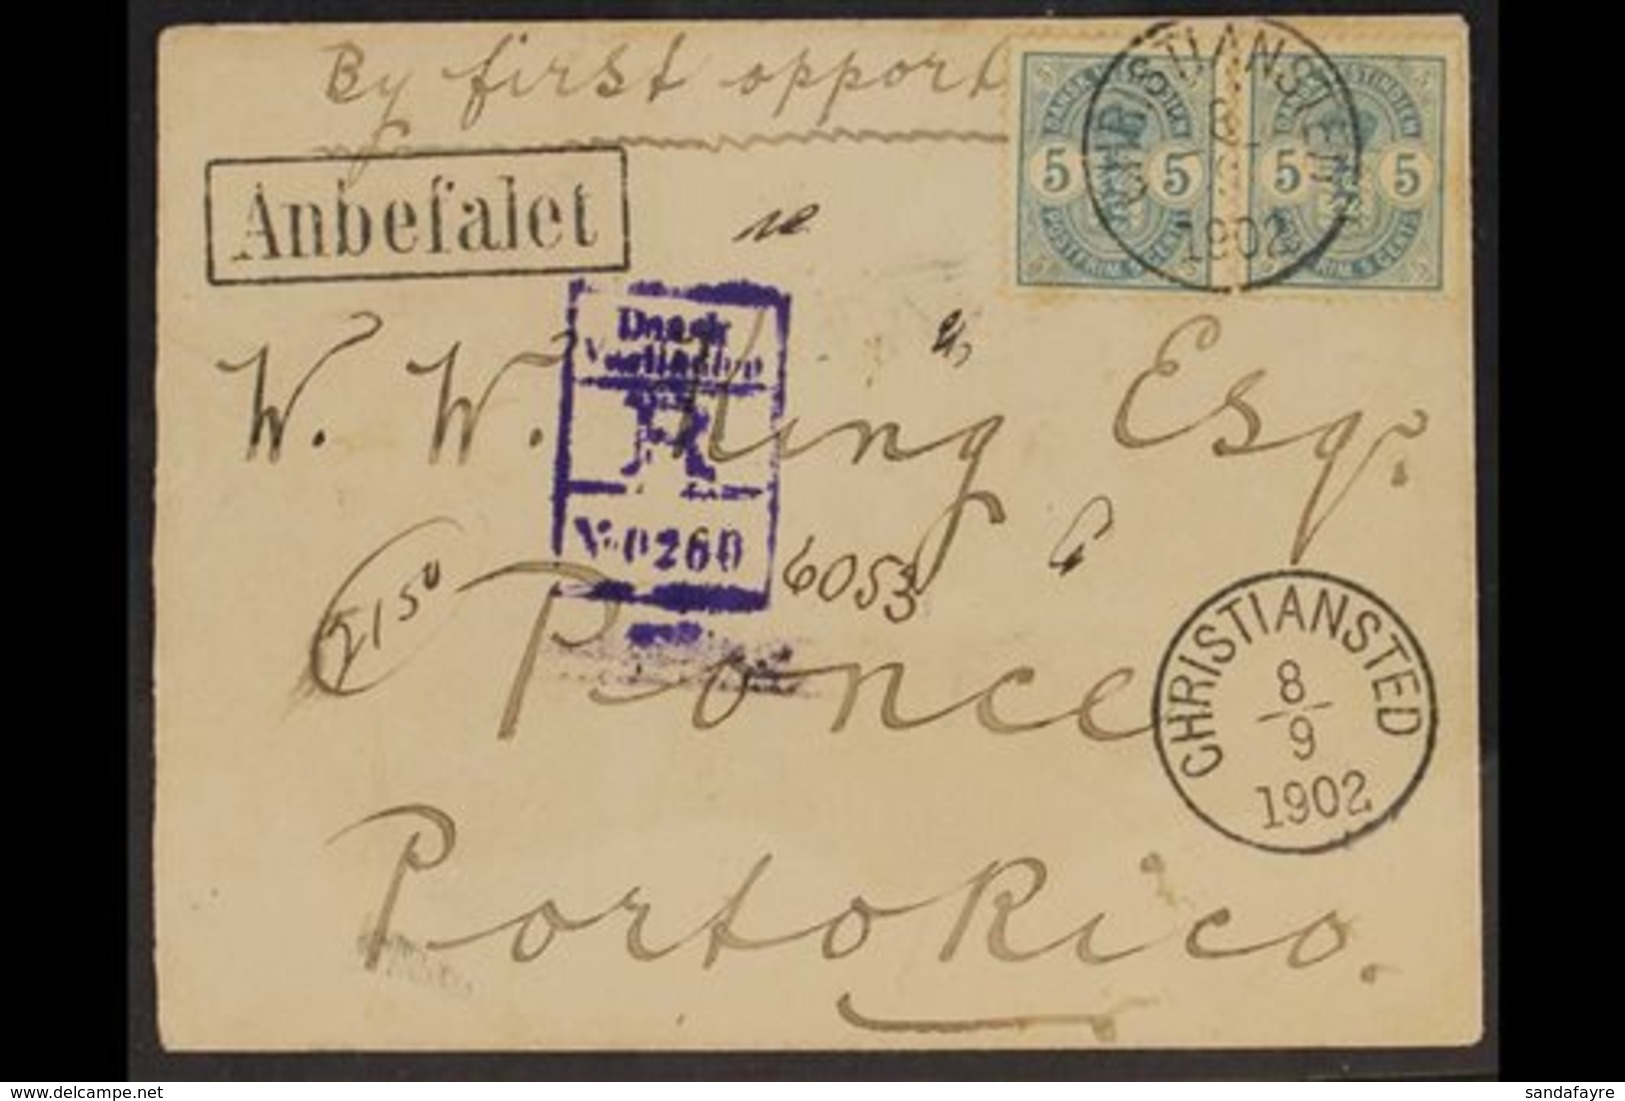 By first opport
Anbefalet
5 5 5 5
CHRISTIANSTED
1902
Dansk
Vestindien
R
No 0260
W. W. King Esq.
6053
2150
Ponce
CHRISTIANSTED
8/9
1902
Porto Rico.
www.delcampe.net
sandafayre